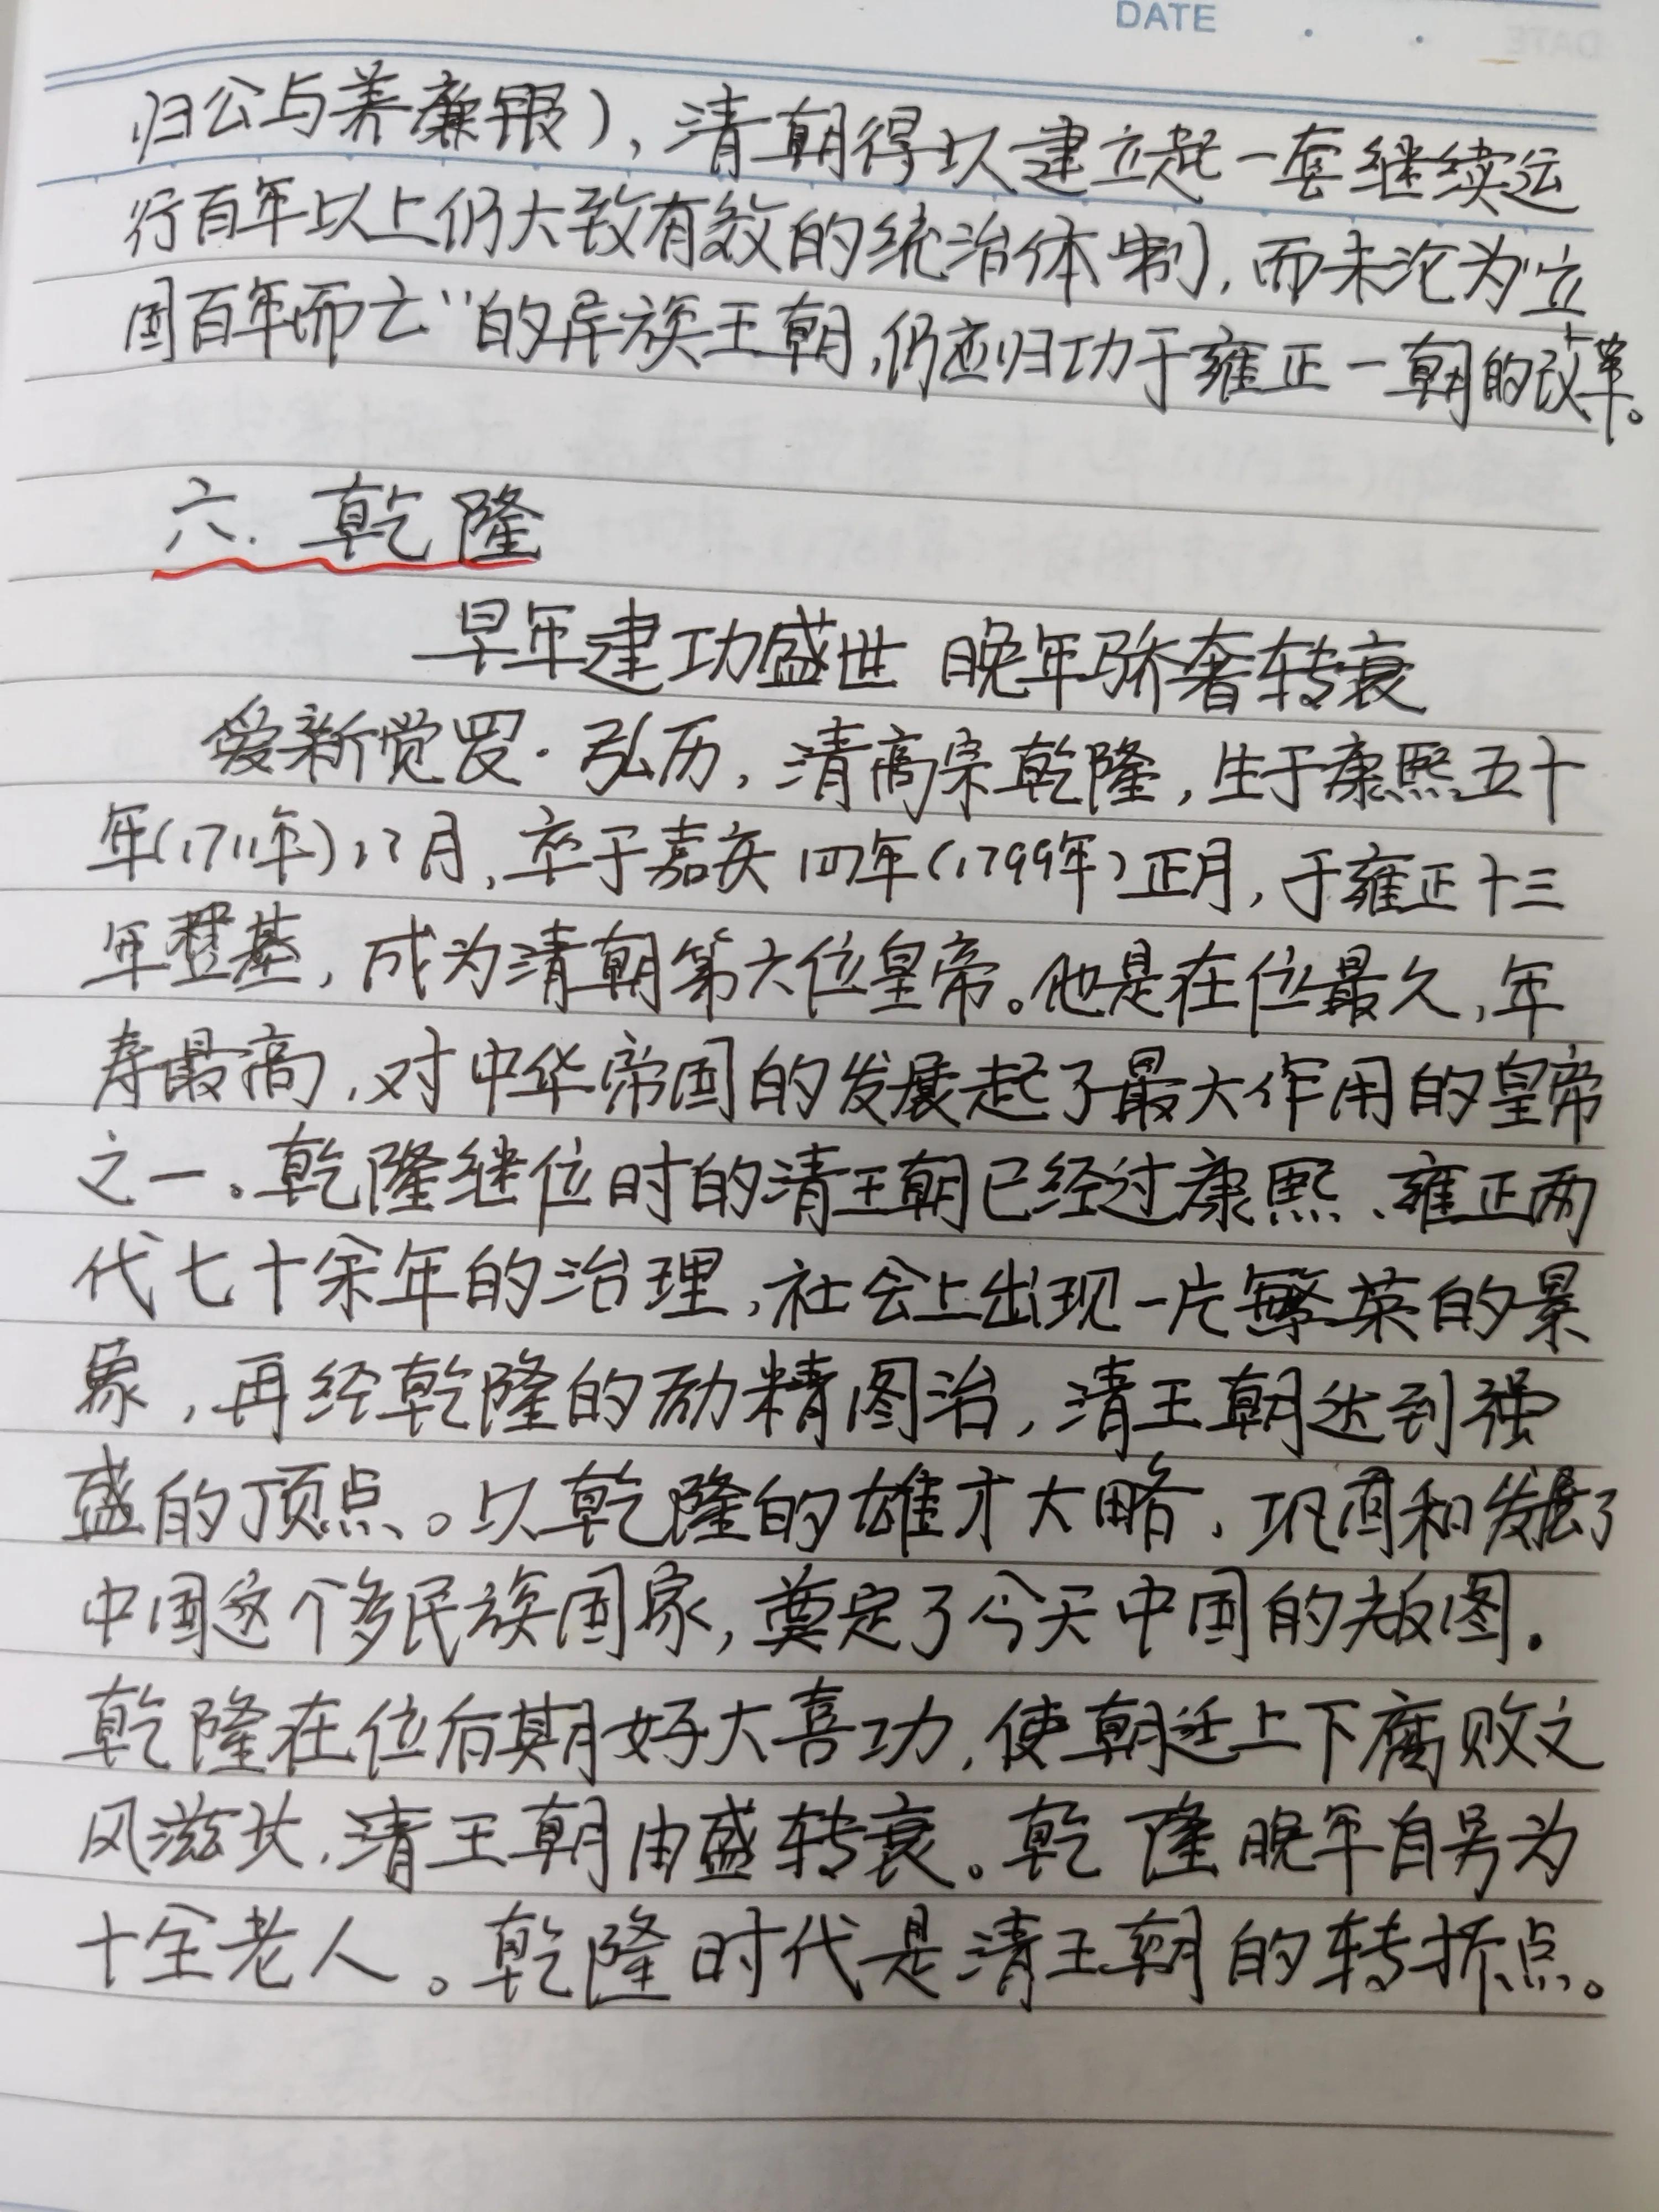 DATE
归公与养廉银），清朝得以建立起一套继续运
行百年以上仍大致有效的统治体制，而未沦为立
国百年而亡”的异族王朝，仍应归功于雍正一朝的改革。
六.乾隆
早年建功盛世 晚年骄奢转衰
爱新觉罗·弘历，清高宗乾隆，生于康熙五十
年（1711年）12月，卒于嘉庆四年（1799年）正月，于雍正十三
年登基，成为清朝第六位皇帝。他是在位最久，年
寿最高，对中华帝国的发展起了最大作用的皇帝
之一。乾隆继位时的清王朝已经过康熙、雍正两
代七十余年的治理，社会上出现一片繁荣的景
象，再经乾隆的励精图治，清王朝达到强
盛的顶点。以乾隆的雄才大略，巩固和发展了
中国这个多民族国家，奠定了今天中国的版图。
乾隆在位后期好大喜功，使朝廷上下腐败之
风滋长，清王朝由盛转衰。乾隆晚年自号为
十全老人。乾隆时代是清王朝的转折点。